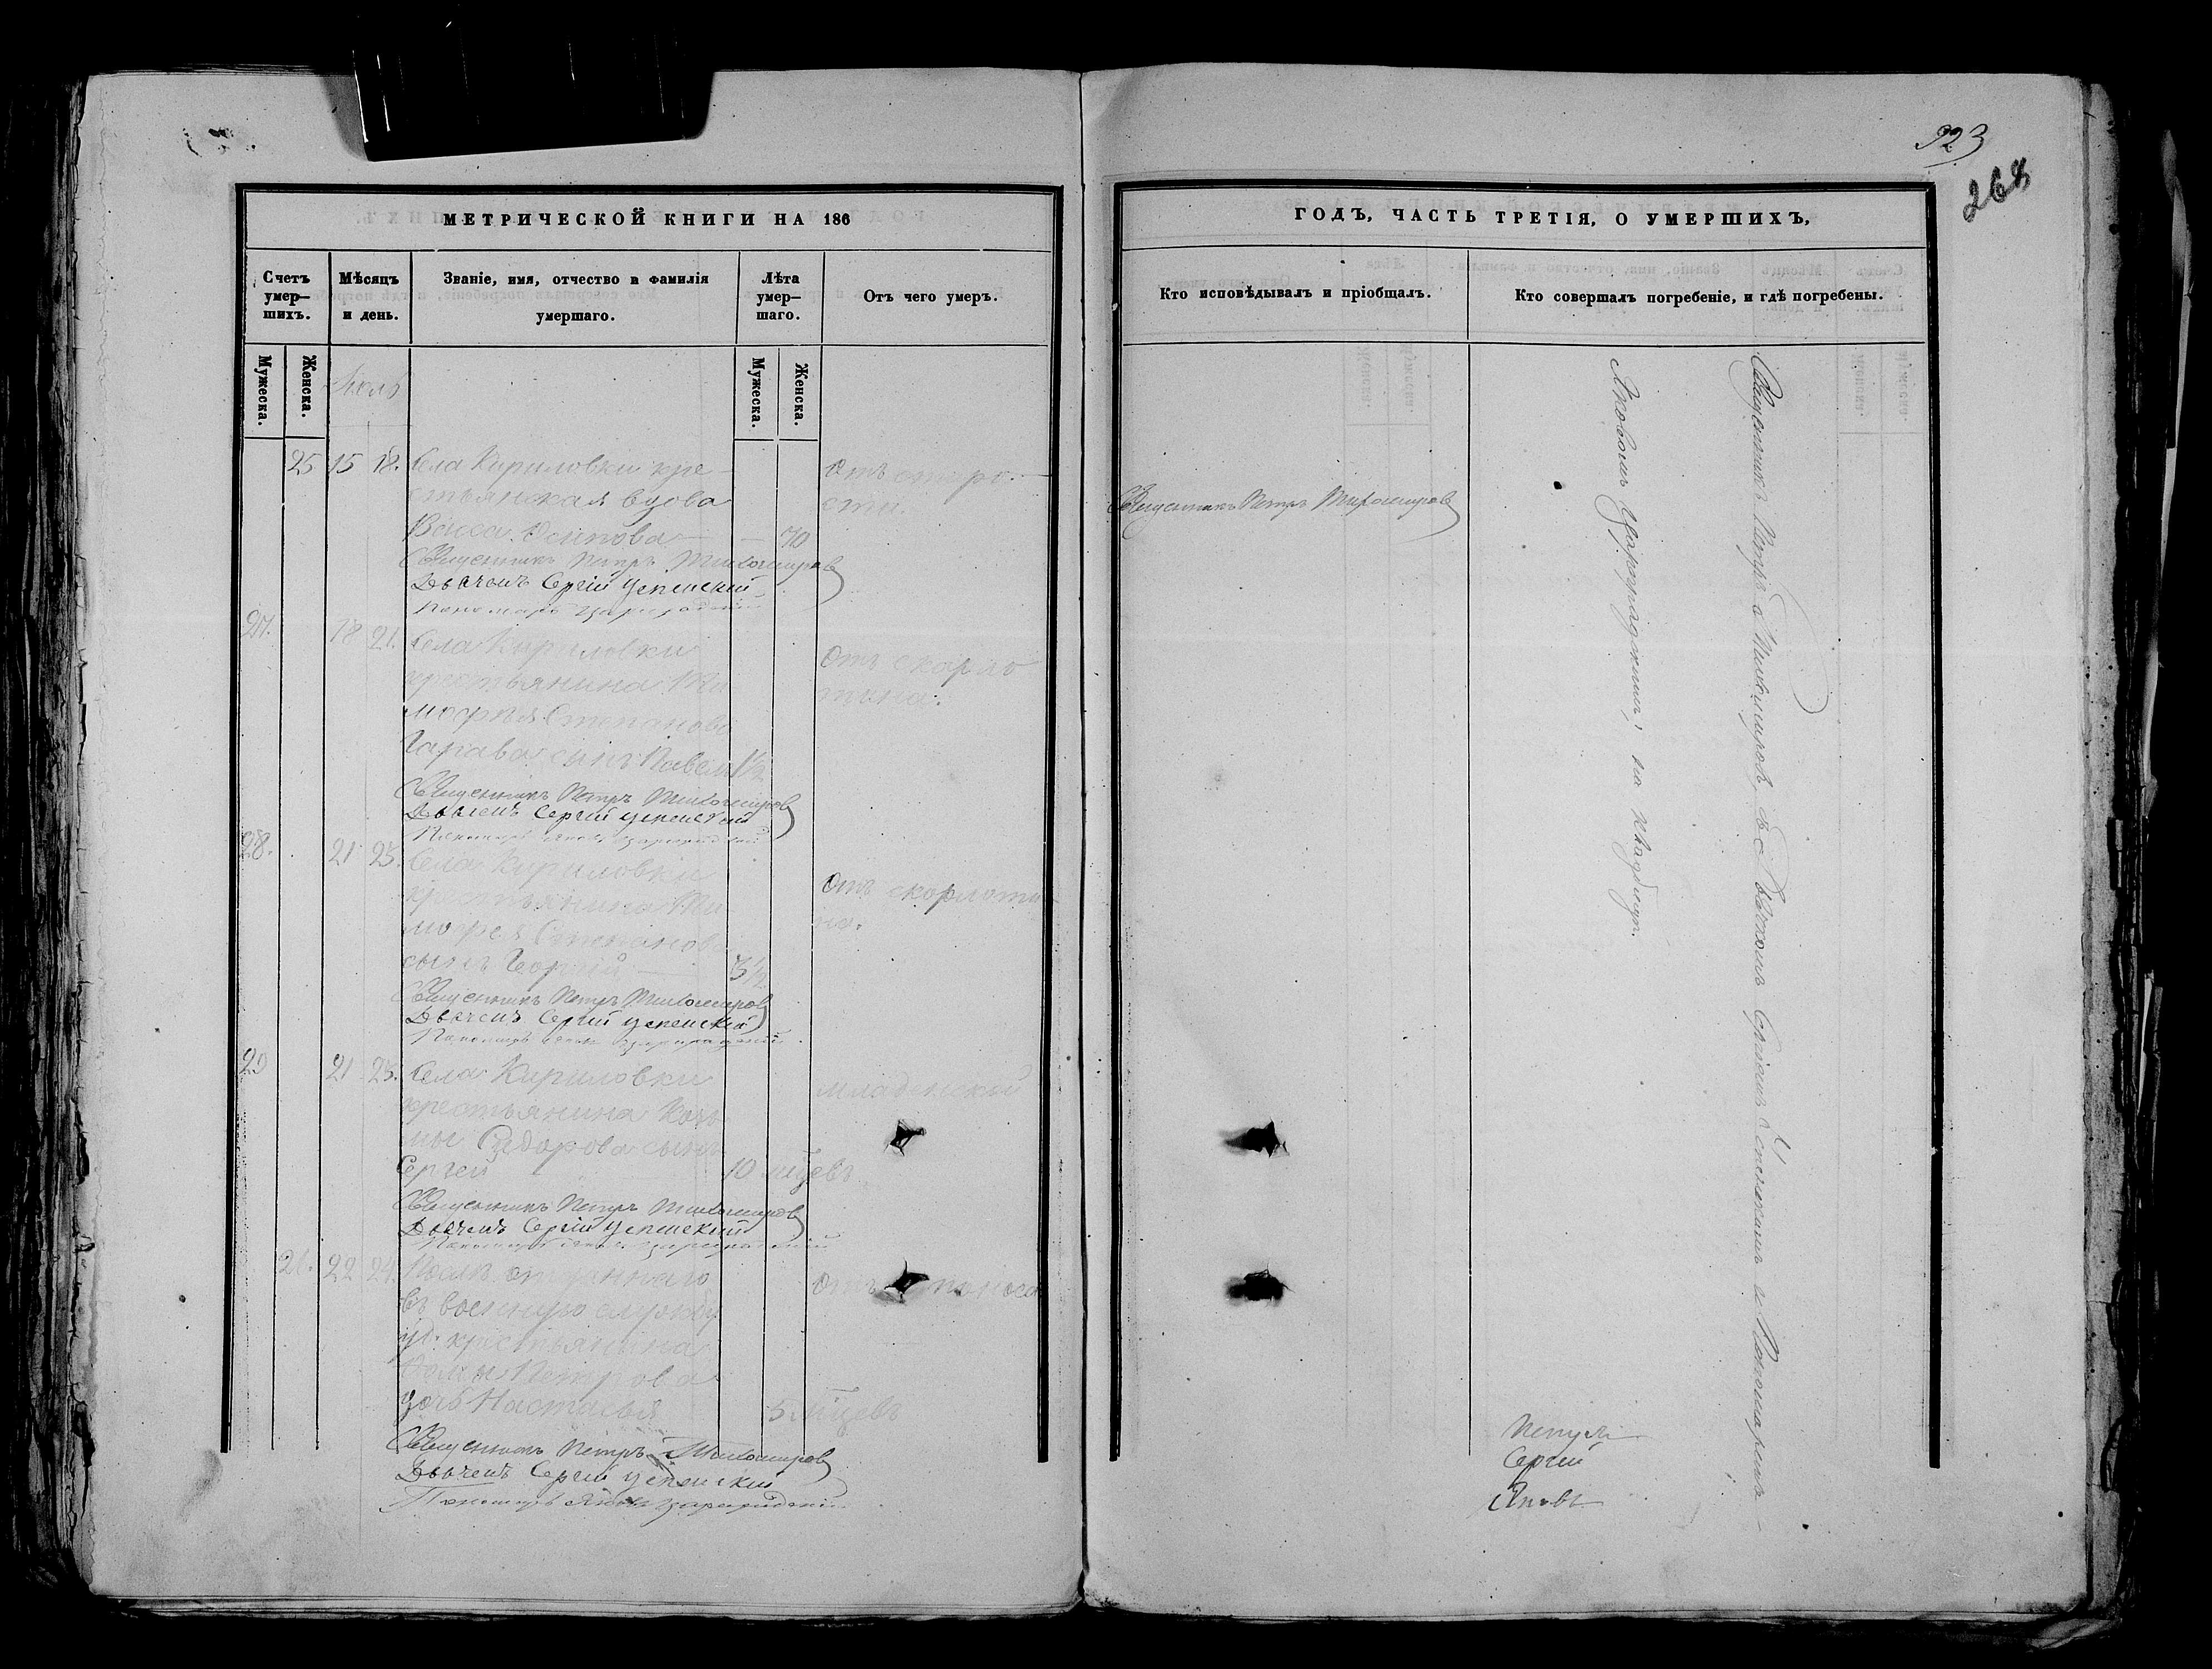 323
268
МЕТРИЧЕСКОЙ КНИГИ НА 186
Счетъ умер–шихъ.
Мѣсяцъ и день.
Званіе, имя, отчество и фамилія умершаго.
Лѣта умер–шаго.
Отъ чего умеръ.
Мужеска.
Женска.
Мужеска.
Женска.
Іюль
25 15 18. Села Кириловки кре-
стьянская вдова
Васса Осипова — — 70
Отъ старо-
сти.
Священникъ Петръ Тихомировъ
Дьячекъ Сергій Успенскій
Пономарь
27. 18 21. Села Кириловки
крестьянина Ти
мофея Степанова
сынъ Павелъ 1½
Отъ скарла
тина.
Священникъ Петръ Тихомировъ
Дьячекъ Сергій Успенскій
Пономарь Яковъ
28. 21 23. Села Кириловки
крестьянина Ти
мофея Степанова
сынъ Георгій — 3½
Отъ скорлати
на.
Священникъ Петръ Тихомировъ
Дьячекъ Сергій Успенскій
Пономарь Яковъ
29 21 23. Села Кириловки
крестьянина Козь
мы Ѳедорова сынъ
Сергей 10 мцевъ
младенской
Священникъ Петръ Тихомировъ
Дьячекъ Сергій Успенскій
Пономарь Яковъ
26. 22 24.
въ военную службу
уд. крестьянина
Петрова
дочь Настасья 5 мцевъ
Отъ поноса
Священникъ Петръ Тихомировъ
Дьячекъ Сергій Успенскій
Пономарь Яковъ
ГОДЪ, ЧАСТЬ ТРЕТІЯ, О УМЕРШИХЪ,
Кто исповѣдывалъ и пріобщалъ.
Кто совершалъ погребеніе, и гдѣ погребены.
Священникъ Петръ Тихомировъ
Священникъ Петръ Тихомировъ, съ Дьячкомъ Сергіемъ Успенскимъ и Пономаремъ
Яковомъ на кладбищѣ.
Петръ
Сергій
Яковъ